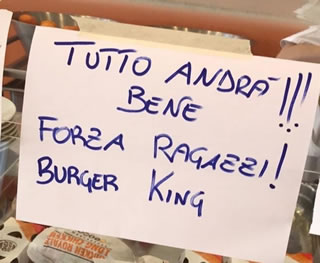 TUTTO ANDRÀ!!!
BENE
FORZA RAGAZZI!
BURGER KING